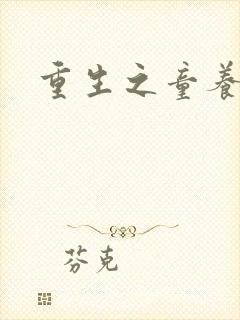 重生之童养
芬克